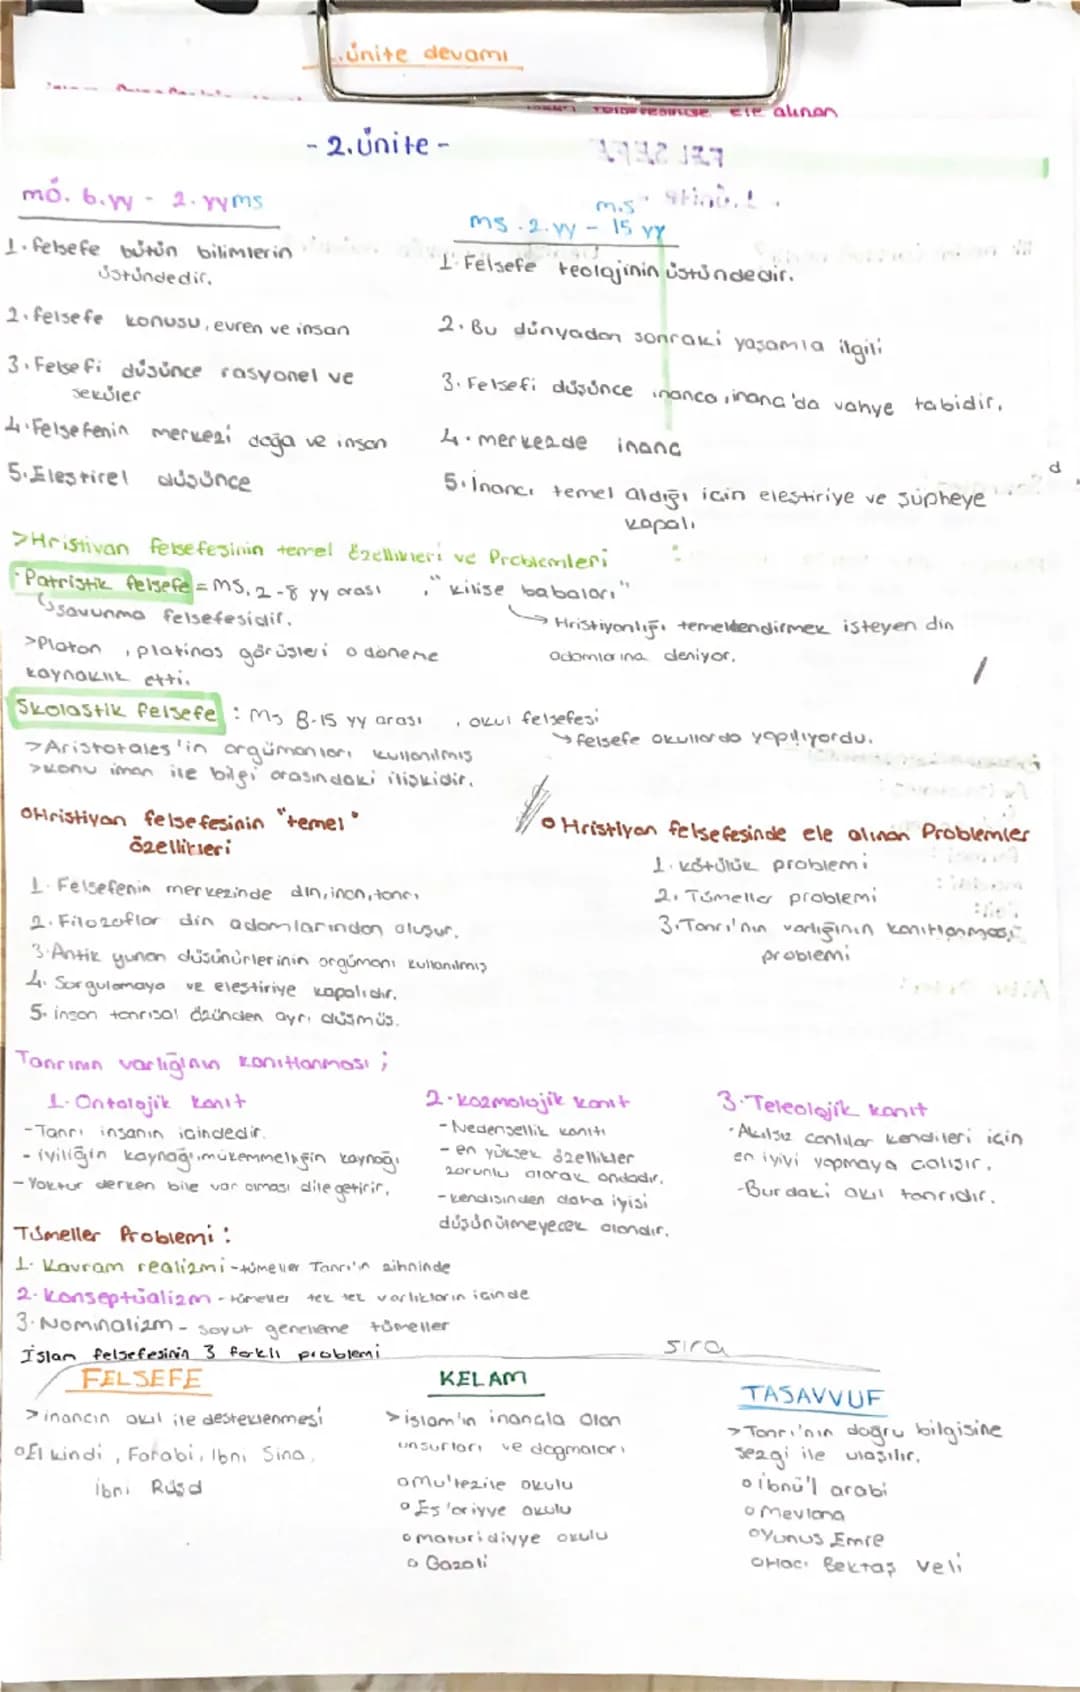 ünite devamı
ele alınan
- 2.ünite -
mö. 6.yy - 2.yyms
1. felsefe bütün bilimlerin
üstündedir.
2. felsefe konusu, evren ve insan
3. Felsefi düşünce rasyonel ve
seküler
4. Felsefenin merkezi doğa ve insan
5. Eleştirel düşünce
m.s
ms. 2.yy - 15 yy
1. Felsefe teolojinin üstündedir.
2. Bu dünyadan sonraki yaşamla ilgili
3. Felsefi düşünce inanca, inanç'da vahye tabidir.
4. merkezde inanç
5. İnancı temel aldığı için eleştiriye ve şüpheye
kapalı
d
>Hristiyan felsefesinin temel özellikleri ve Problemleri :
·Patristik felsefe = MS. 2-8 yy arası , "kilise babaları"
savunma felsefesidir.
→ Hristiyanlığı temellendirmek isteyen din
adamlarına deniyor.
>Platon , platinos görüşleri o döneme
kaynaklık etti.
Skolastik felsefe : MS 8-15 yy arası , okul felsefesi
→ felsefe okullarda yapılıyordu.
>Aristotales'in argümanları kullanılmış
>konu iman ile bilgi arasındaki ilişkidir.
oHristiyan felsefesinin "temel"
özellikleri
1. Felsefenin merkezinde din, inan, tanrı
2. Filozoflar din adamlarından oluşur.
3. Antik yunan düşünürlerinin argümanı kullanılmış
4. Sorgulamaya ve eleştiriye kapalıdır.
5. insan tanrısal özünden ayrı düşmüş.
o Hristiyan felsefesinde ele alınan Problemler
1. kötülük problemi
2. Tümeller problemi
3. Tanrı'nın varlığının kanıtlanması
problemi
Tanrının varlığının kanıtlanması ;
1. Ontolojik kanıt
- Tanrı insanın içindedir.
- iyiliğin kaynağı, mükemmelliğin kaynağı
- Yoktur derken bile var olması dile getirir.
2. kozmolojik kanıt
- Nedensellik kanıtı
- en yüksek özellikler
zorunlu olarak ondadır.
- kendisinden daha iyisi
düşünülmeyecek olandır.
3. Teleolojik kanıt
· Akılsız canlılar kendileri için
en iyiyi yapmaya çalışır.
-Burdaki akıl tanrıdır.
Tümeller Problemi :
1. Kavram realizmi - tümeller Tanrı'n zihninde
2. Konseptüalizm - tümeller tek tek varlıkların içinde
3. Nominalizm - soyut genelleme tümeller
İslam felsefesinin 3 farklı problemi
sıra
FELSEFE
> inancın akıl ile desteklenmesi
oEl kindi , Farabi, İbni Sina,
ibni Rüşd
KELAM
>islam'ın inançla olan
unsurları ve dogmaları
oMu'tezile okulu
o Eş'ariyye okulu
o maturidiyye okulu
o Gazali
TASAVVUF
>Tanrı'nın doğru bilgisine
sezgi ile ulaşılır.
o ibnü'l arabi
o Mevlana
oYunus Emre
oHacı Bektaş Veli